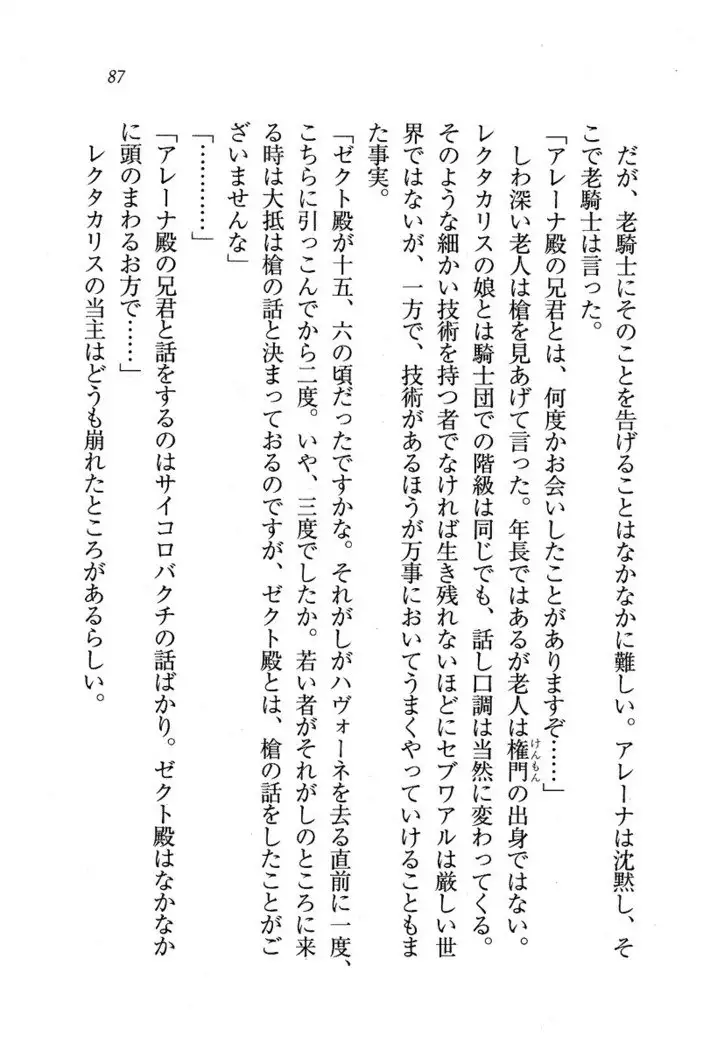 87
だが、老騎士にそのことを告げることはなかなかに難しい。アレーナは沈黙し、そ
こで老騎士は言った。
「アレーナ殿の兄君とは、何度かお会いしたことがありますぞ……」
しわ深い老人は槍を見あげて言った。年長ではあるが老人は権門の出身ではない。
けんもん
レクタカリスの娘とは騎士団での階級は同じでも、話し口調は当然に変わってくる。
そのような細かい技術を持つ者でなければ生き残れないほどにセブワアルは厳しい世
界ではないが、一方で、技術があるほうが万事においてうまくやっていけることもま
た事実。
「ゼクト殿が十五、六の頃だったですかな。それがしがハヴォーネを去る直前に一度、
こちらに引っこんでから二度。いや、三度でしたか。若い者がそれがしのところに来
る時は大抵は槍の話と決まっておるのですが、ゼクト殿とは、槍の話をしたことがご
ざいませんな」
「…………」
「アレーナ殿の兄君と話をするのはサイコロバクチの話ばかり。ゼクト殿はなかなか
に頭のまわるお方で……」
レクタカリスの当主はどうも崩れたところがあるらしい。